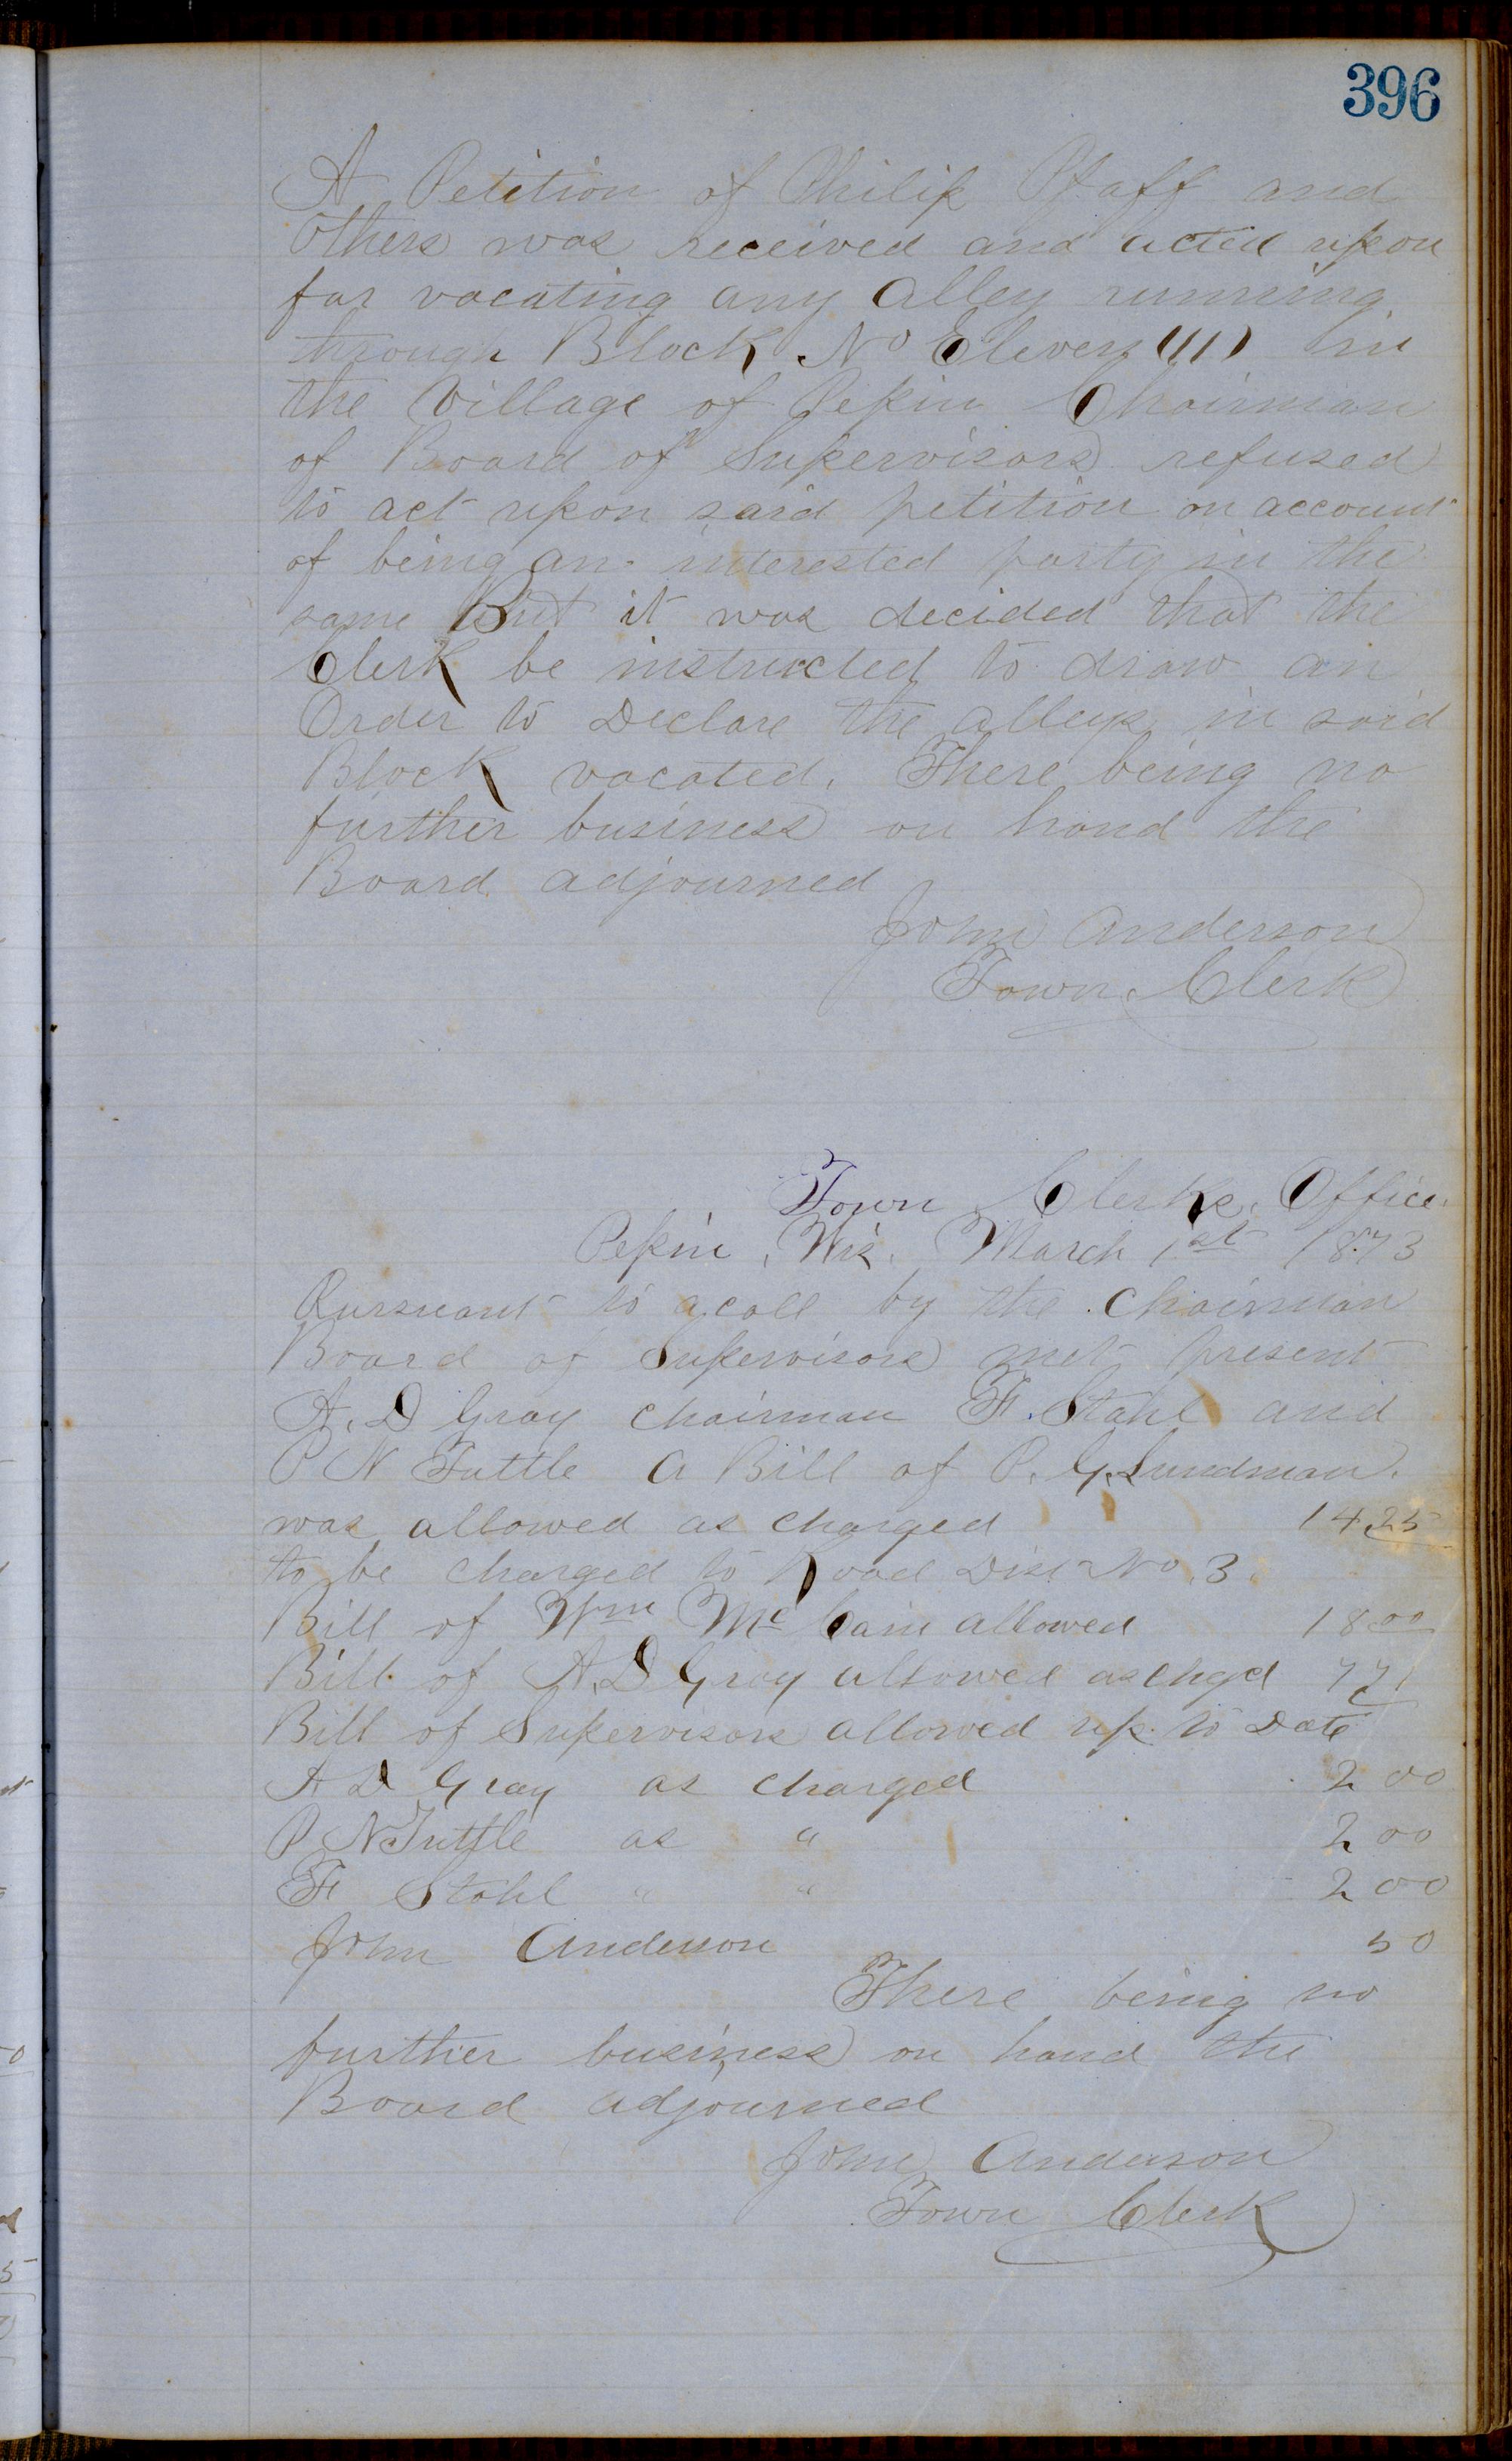 396
A Petition of Philip Pfaff and
Others was received and acted upon
for vacating any Alley running
through Block No Eleven (11) in
the Village of Pepin Chairman
of Board of Supervisors refused
to act upon said petition on account
of being an interested party in the
same But it was decided that the
Clerk be instructed to draw an
Order to Declare the alleys in said
Block vacated. There being no
further business on hand the
Board adjourned
John Anderson
Town Clerk
Town Clerks Office.
Pepin, Wis. March 1st 1873
Pursuant to a call by the Chairman
Board of Supervisors met present
A. D Gray Chairman F. Stahl and
P N Tuttle A Bill of P. G. Lundman.
was allowed as charged 14.25
to be charged to Road Dist No. 3.
Bill of Wm Mc Cain allowed 18 00
Bill of A. D Gray allowed as chgd
Bill of Supervisors allowed up to Date
A D Gray as charged 2 00
P N Tuttle as " 2 00
F Stahl " " 2 00
John Anderson 50
There being no
further business on hand the
Board adjourned
John Anderson
Town Clerk